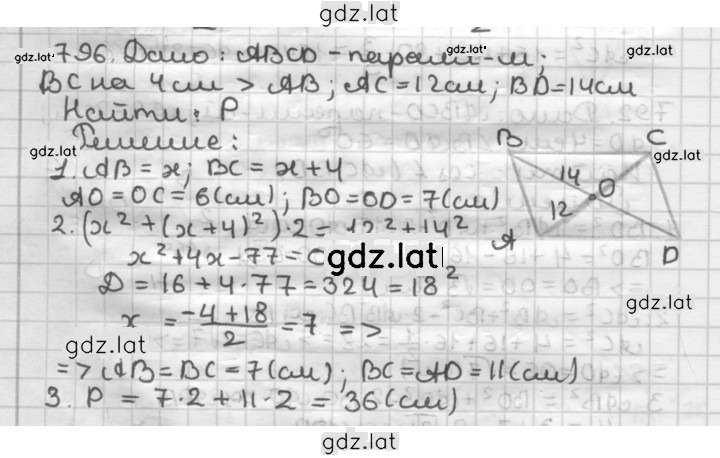 gdz.lat
gdz.lat
gdz.lat
796. Дано: ABCD - паралл-м;
BC на 4 см > AB; AC = 12 см; BD = 14 см
Найти: P
Решение:
gdz.lat
1. AB = x; BC = x + 4
AO = OC = 6 (см); BO = OD = 7 (см)
2. (x² + (x + 4)²) · 2 = 12² + 14²
x² + 4x - 77 = 0
gdz.lat
D = 16 + 4 · 77 = 324 = 18²
x = (-4 + 18)/2 = 7 =>
=> AB = BC = 7 (см); BC = AD = 11 (см)
3. P = 7 · 2 + 11 · 2 = 36 (см)
B
C
gdz.lat
14
O
12
A
D
gdz.lat
gdz.lat
gdz.lat